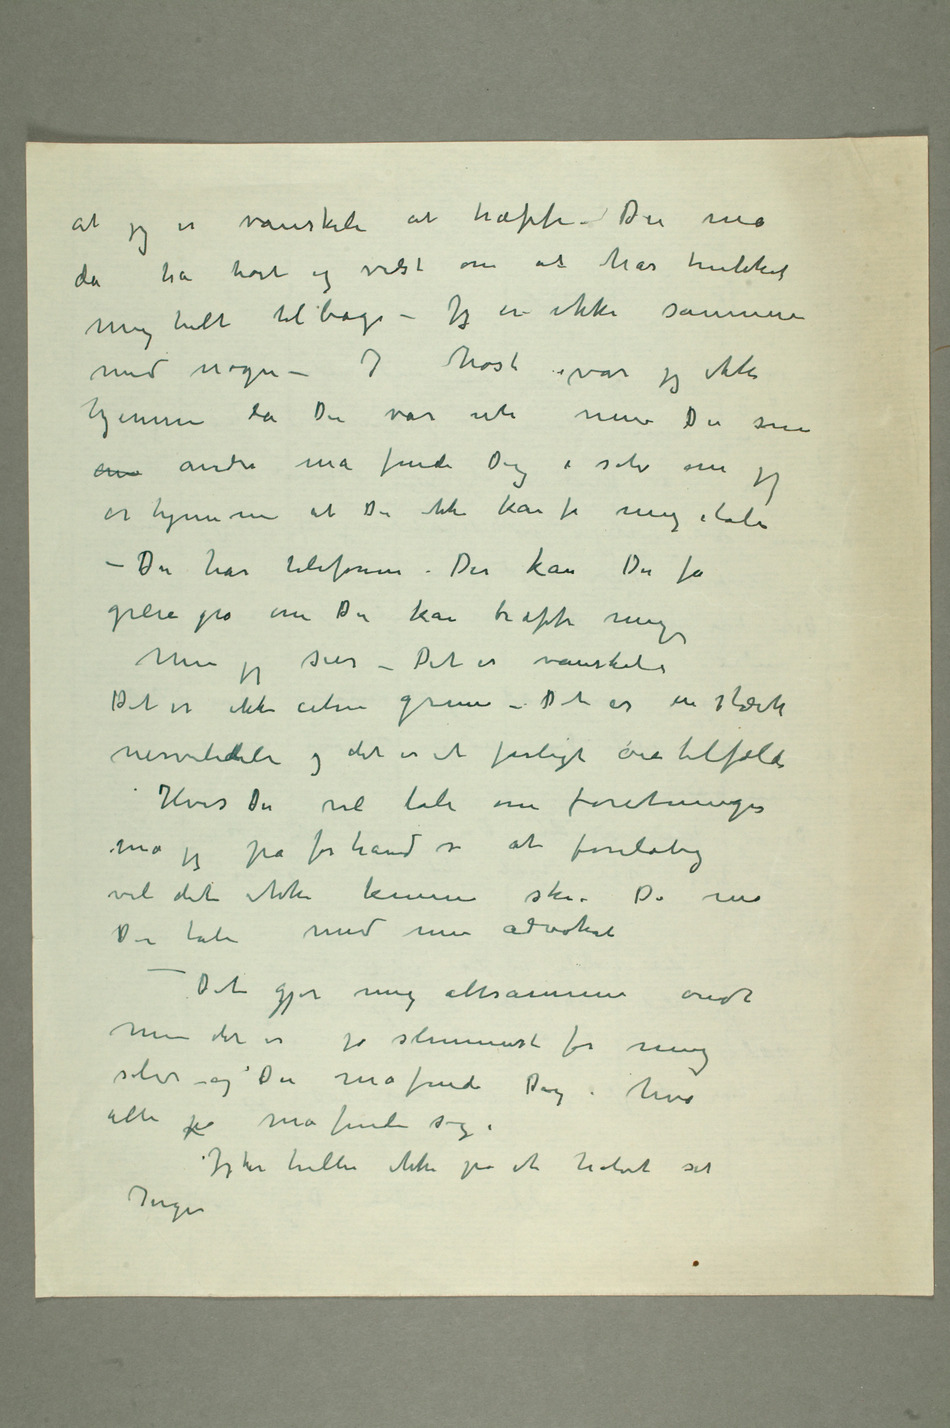 at jeg er vanskeli at træffe – Du må
da ha hørt og vidst om at har trukket
mig helt tilbage – Jeg er ikke sammen
med nogen – I høst var jeg ikke
hjemme da Du var ute men Du som
andre må finde Dig i selv om jeg
er hjemme at Du ikke kan få mig i tale
– Du har telefonen. Der kan Du få
greie på om Du kan træffe mig
Men jeg sier – Det er vanskeli
Det er ikke uten grunn – Det er en stærk
nervelidelse og det er et farligt øietilfælde
Hvis Du vil tale om foretninger
må jeg på forhånd si at foreløbig
vil det ikke kunne ske. Da må
Du tale med min advokat
– Det gjør mig altsammen ondt
men det er jo slemmest for mig
selv – og Du må finde Dig i hva
alle må finde sig i
Jeg har heller ikke på et halvt set
Inger